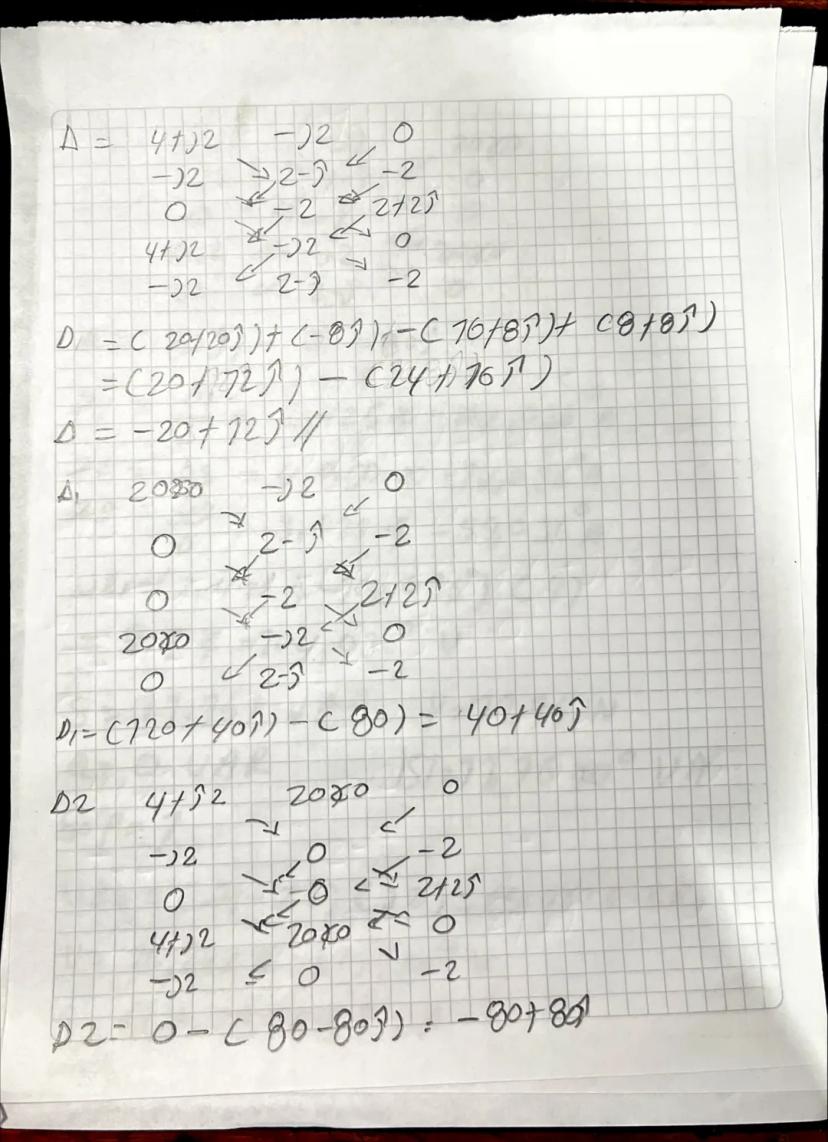 Δ = 4+j2 -j2 0
-j2 2-j -2
0 -2 2+2j
4+j2 -j2 0
-j2 2-j -2
D = (20+20j)+(-8j) -(16+8j)+ (8+8j)
=(20+12j) - (24+16j)
Δ = -20+12j //
Δ1 -j2 0
0 2-j -2
0 -2 2+2j
-j2 0
0 2-j -2
D1=(120+40j)-(80)= 40+40j
D2 4+j2 0
-j2 0 -2
0 -0 2+2j
4+j2 0
-j2 0 -2
D2= 0-(80-80j) = -80+80j